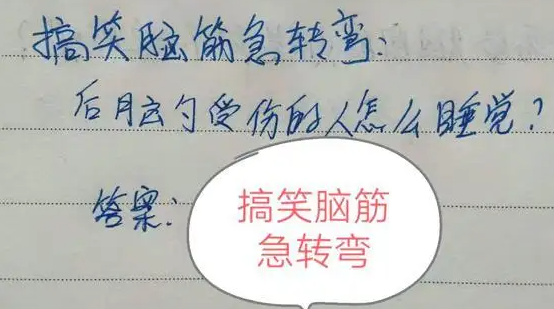 搞笑脑筋急转弯:
后月玄勺受伤的人怎么睡觉?
答案:
搞笑脑筋
急转弯